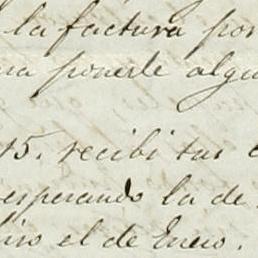 la factura por
ponerle algu
15. recibi tus
esperando la de
el de Enero.